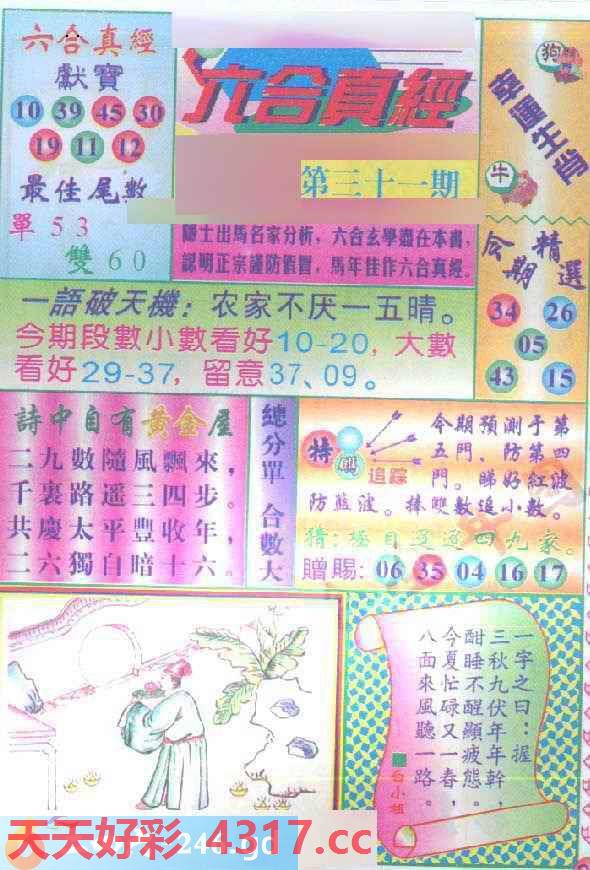 六合真經
獻寶
10 39 45 30
19 11 12
最佳尾數
單53
雙60
六合真經
第三十一期
隱士出馬名家分析，六合玄學盡在本書，
認明正宗謹防假冒，馬年佳作六合真經。
狗
幸運生肖
牛
今期精選
34 26
05
43 15
一語破天機：农家不厌一五晴。
今期段數小數看好10-20，大數
看好29-37，留意37、09。
詩中自有黃金屋
二九數隨風飄來，
千裏路遥三四步。
共慶太平豐收年，
二六獨自暗十六。
總分單 合數大
特碼
追踪
今期預測于第
五門、防第四
門。睇好紅波
防藍波。捧雙數追小數。
四九家。
贈賜：06 35 04 16 17
一字之曰：握
三秋九伏年年幹，
酣睡不醒顯疲態。
今夏忙碌又一春，
八面來風聽一路。
台小姐
天天好彩 4317.cc